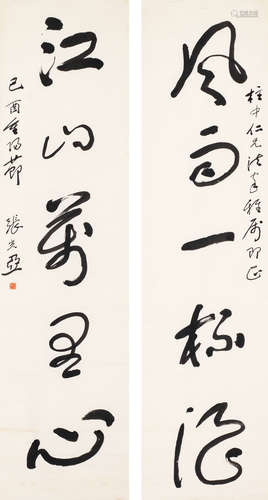 柱中仁兄法家雅屬即正
風雨一杯酒
江山萬里心
己酉重陽節